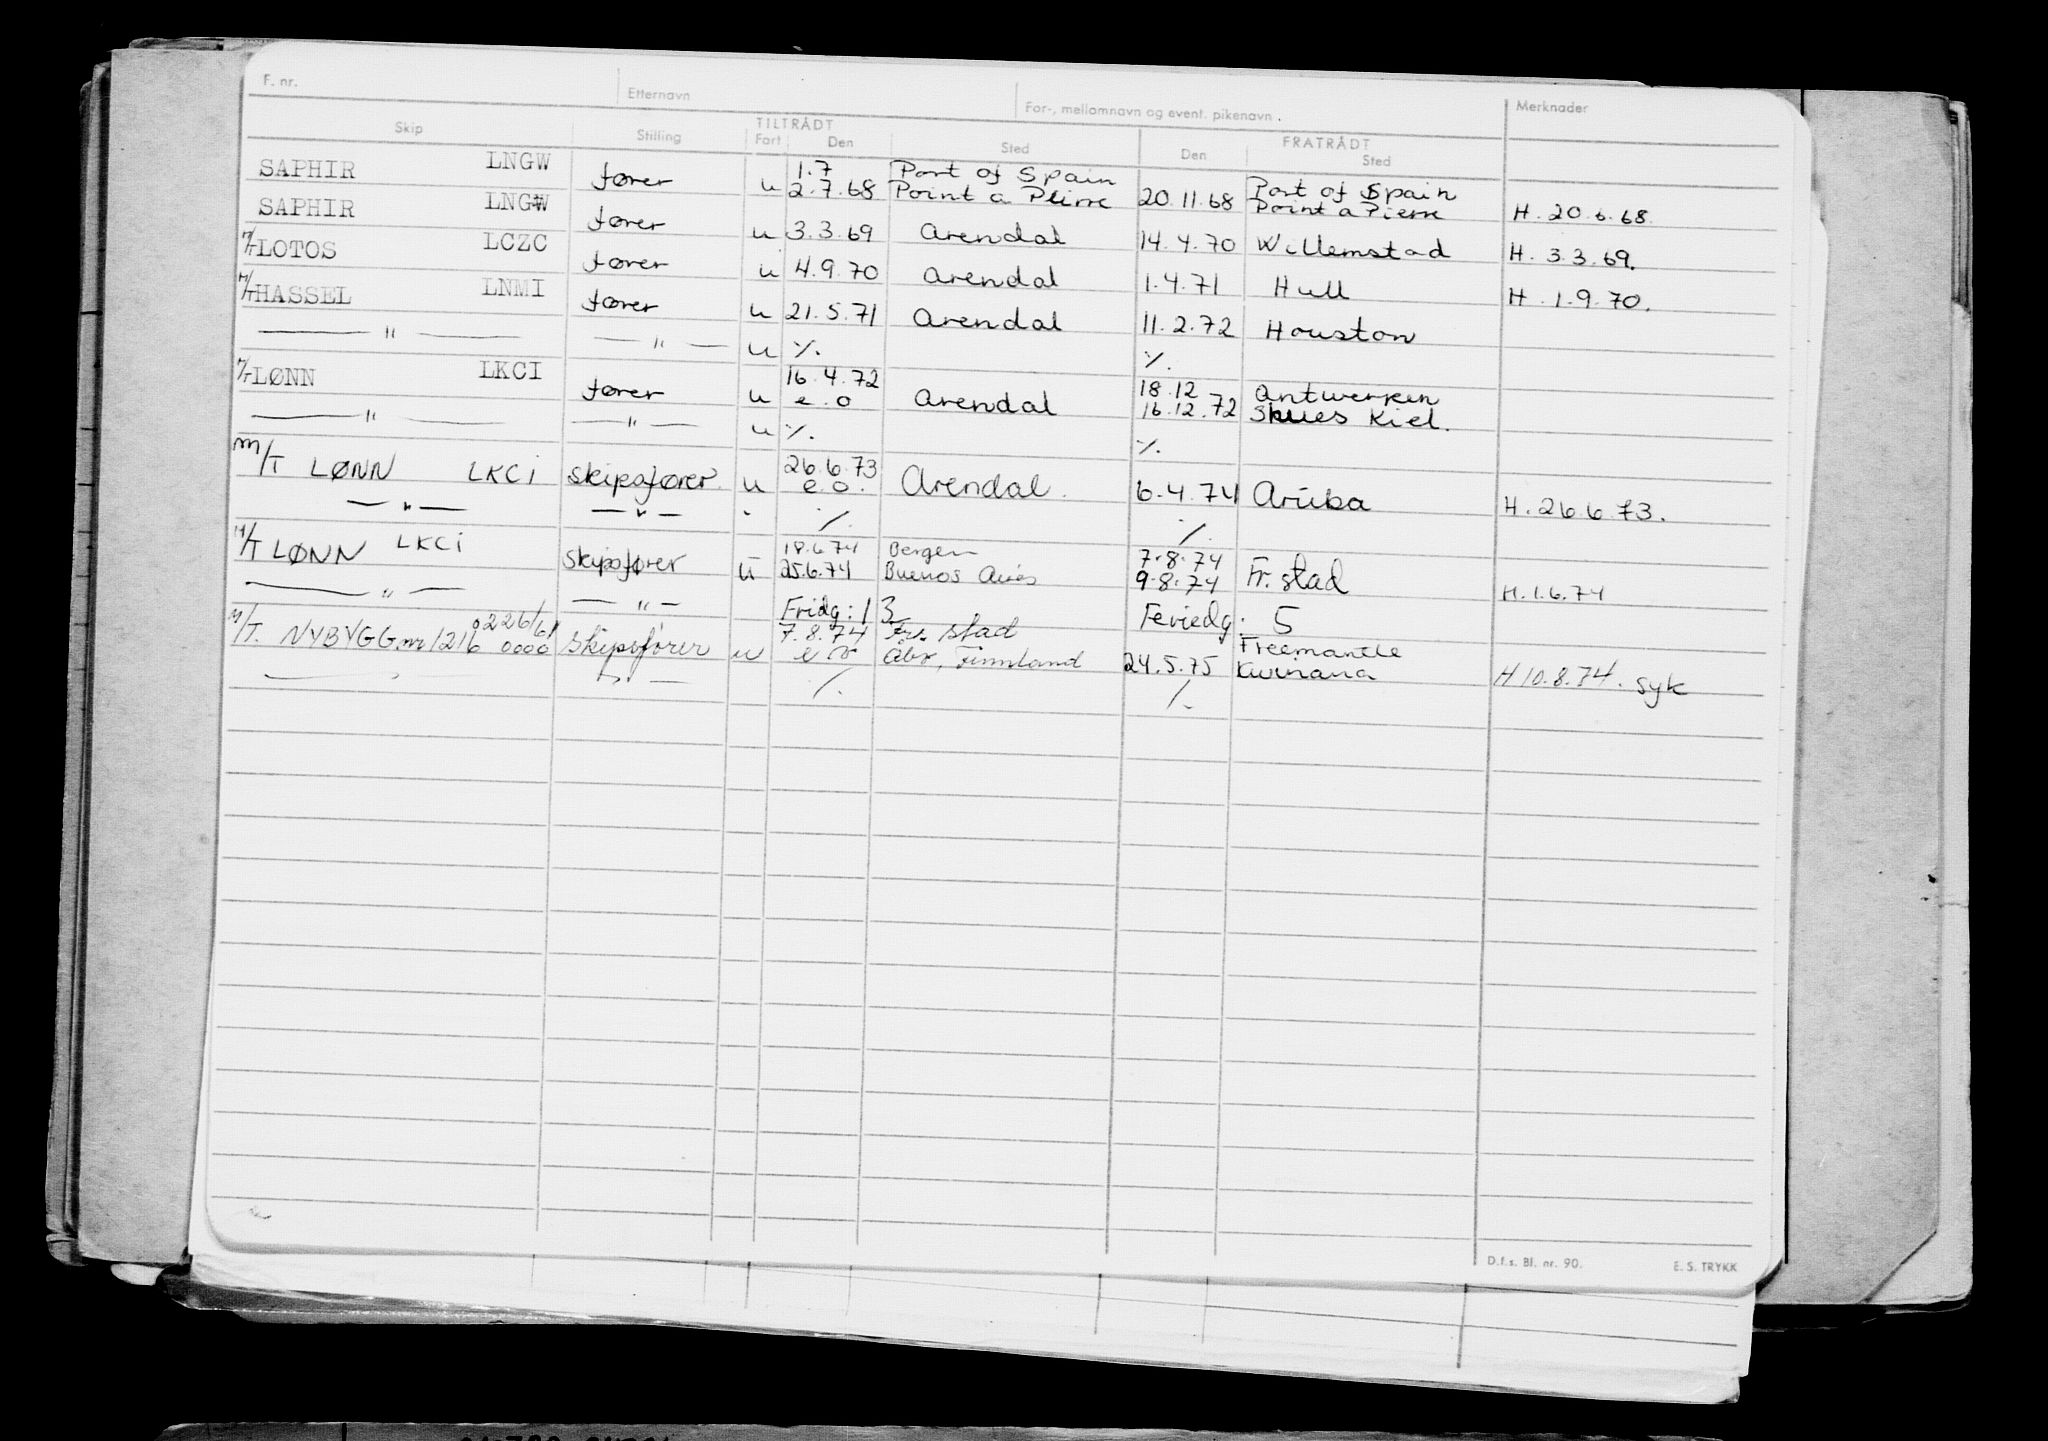 F. nr. Etternavn For-, mellomnavn og event. pikenavn. Merknader
TILTRÅDT FRATRÅDT
Skip Stilling Fart Den Sted Den Sted
1.7 Port of Spain Port of Spain
SAPHIR LNGW fører u 2.7.68 Point a Pierre 20.11.68 Point a Pierre H. 20.6.68.
SAPHIR LNGW fører u 3.3.69 Arendal 14.4.70 Willemstad H. 3.3.69.
M/T LOTOS LCZC fører u 4.9.70 Arendal 1.4.71 Hull H. 1.9.70.
M/T HASSEL LNMI fører u 21.5.71 Arendal 11.2.72 Houston
— " — — " — u ./. ./.
16.4.72 18.12 Antwerpen
M/T LØNN LKCI fører u e.o Arendal 16.12.72 Skues Kiel.
— " — — " — u ./. ./.
26.6.73
M/T LØNN LKCI skipsfører u e.o. Arendal. 6.4.74 Aruba H. 26.6.73.
— " — — " — " ./. ./.
18.6.74 Bergen 7.8.74
M/T LØNN LKCI skipsfører u 25.6.74 Buenos Aires 9.8.74 Fr.stad H. 1.6.74
— " — — " — Fridg: 13 Feriedg: 5
0226/61 7.8.74 Frs. stad Freemantle
M/T. NYBYGG nr 1216 0000 skipsfører u e o Åbo, Finnland 24.5.75 Kwinana H 10.8.74. syk
— " — — " — ./. ./.
D.f.s. Bl. nr. 90. E. S. TRYKK